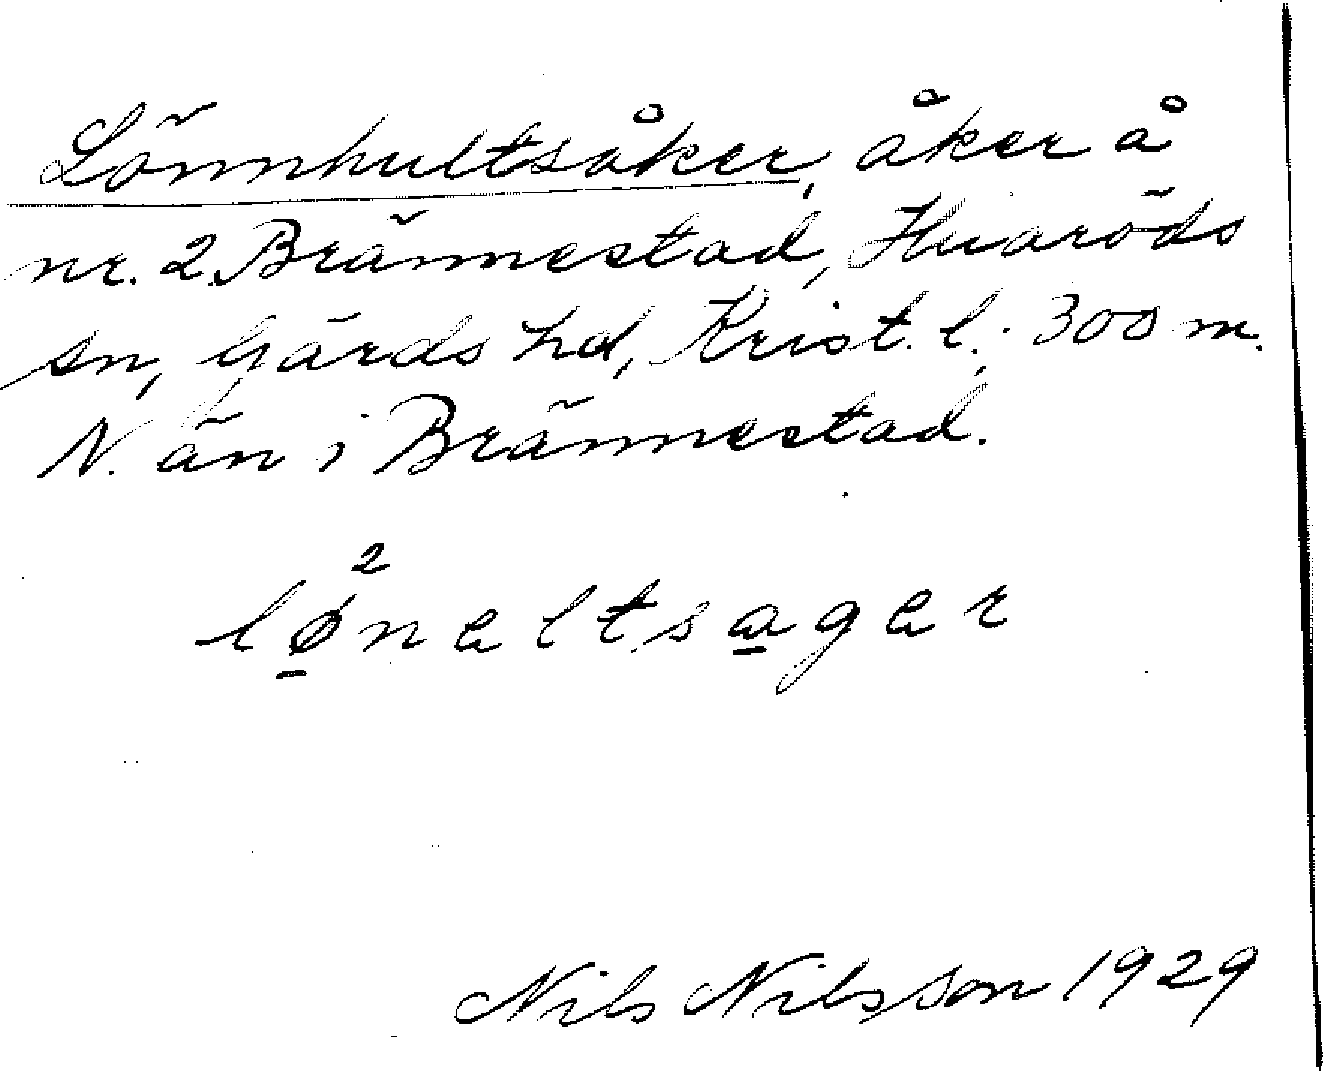 Lönnhultsåker, åker å
nr. 2 Brännestad, Huaröds
sn, Gärds hd, Krist. l. 300 m.
N. än i Brännestad.
2
lø̱neltsa̱ger
Nils Nilsson 1929